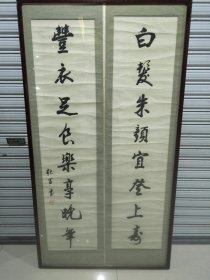 白髮朱顏宜登上壽
豐衣足食樂享晚年